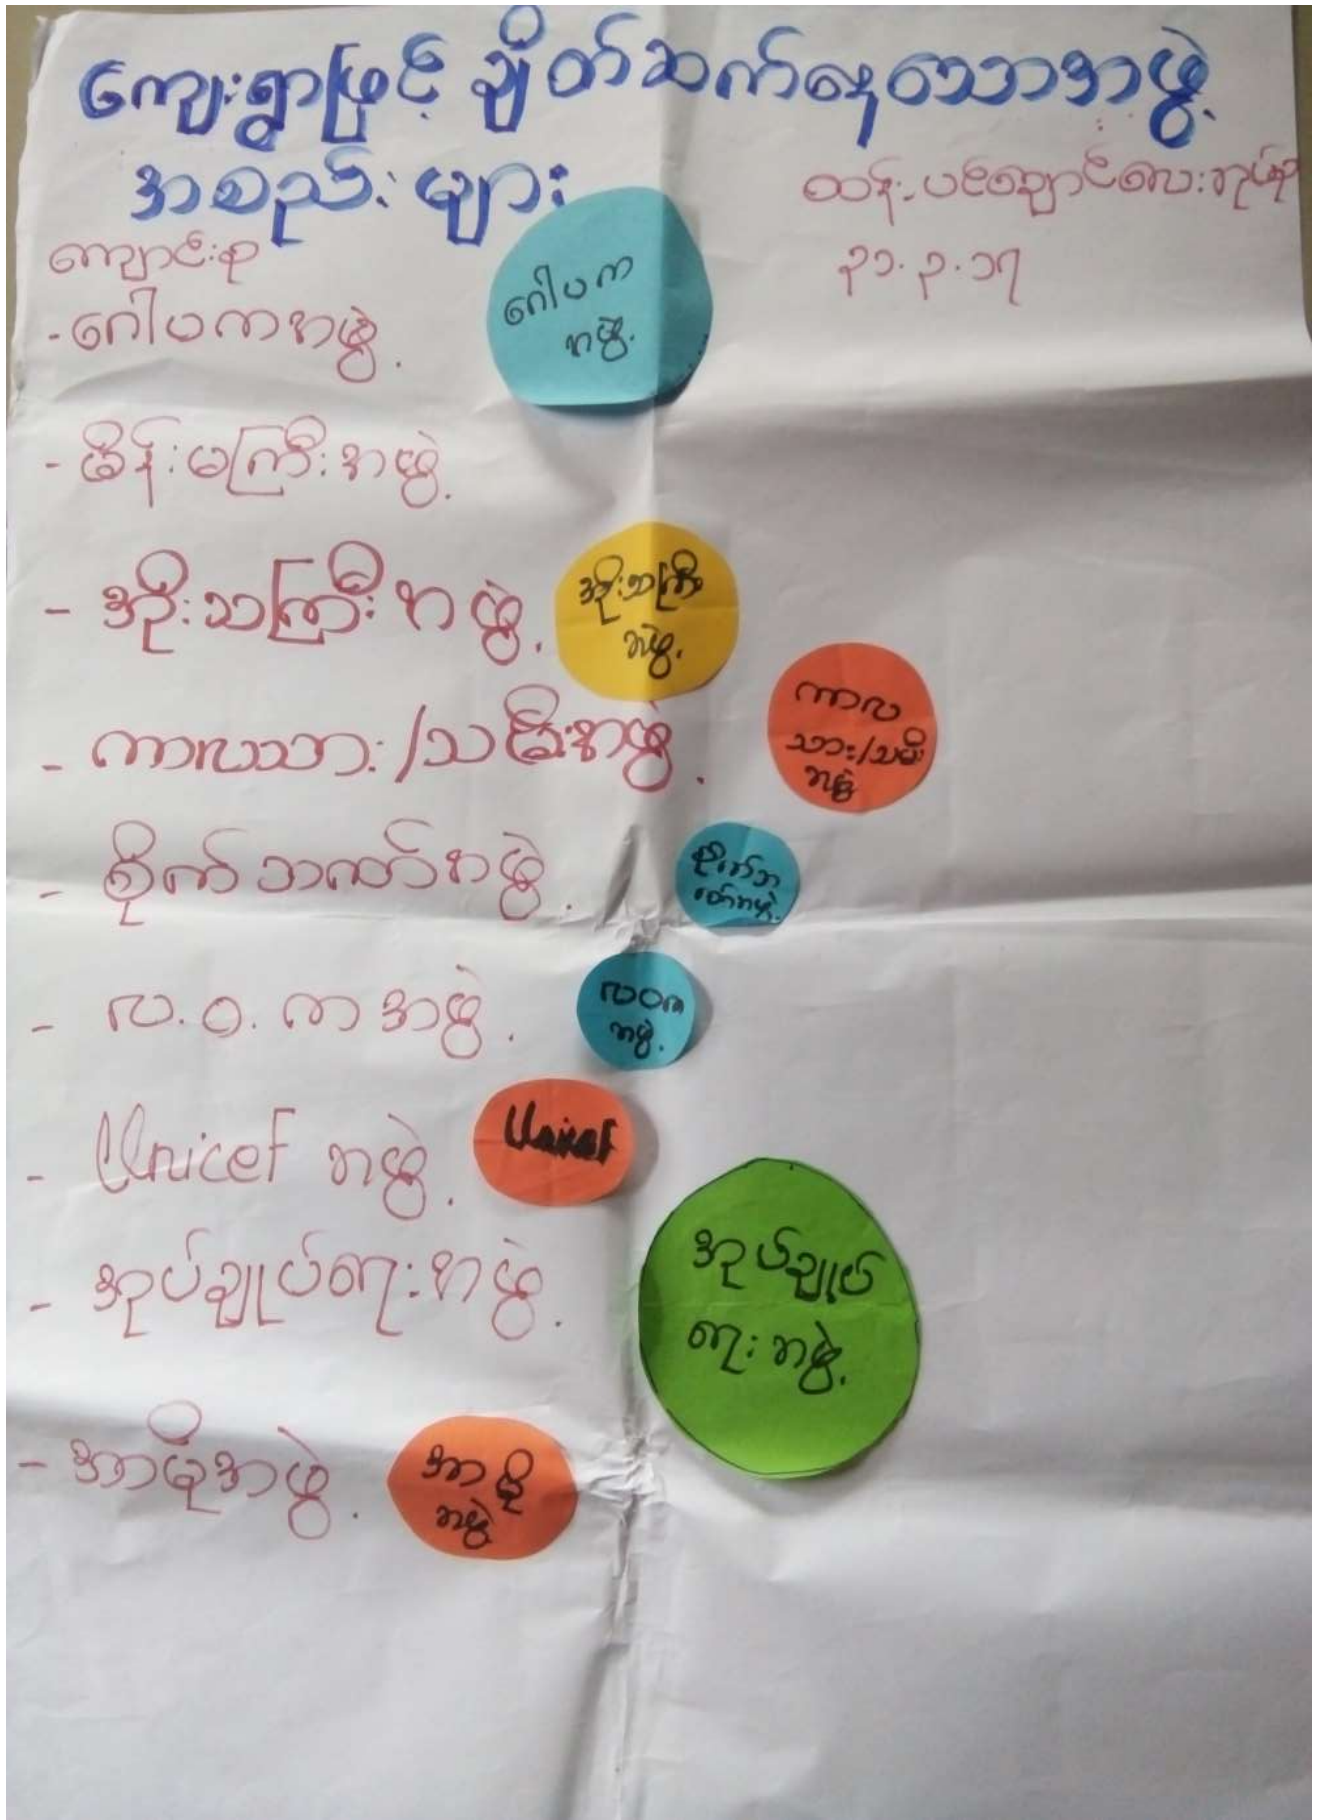 ကျေးရွာဖြင့် ချိတ်ဆက်နေသောအဖွဲ့
အစည်းများ
ထန်းပင်ချောင်လေးအုပ်စု
၃၁.၃.၁၇
ကျောင်းစု
- ဂေါပကအဖွဲ့.
ဂေါပက
အဖွဲ့.
- မိန်းမကြီးအဖွဲ့.
- အိုးသကြီးအဖွဲ့.
အိုးသကြီး
အဖွဲ့.
- ကာလသား/သမီးအဖွဲ့.
ကာလ
သား/သမီး
အဖွဲ့
- စိုက်သဏ်အဖွဲ့.
- လ.ဝ.ကအဖွဲ့.
လဝက
အဖွဲ့.
- Unicef အဖွဲ့.
Unicef
- အုပ်ချုပ်ရေးအဖွဲ့.
အုပ်ချုပ်
ရေးအဖွဲ့.
- အာမိုအဖွဲ့.
အာမို
အဖွဲ့